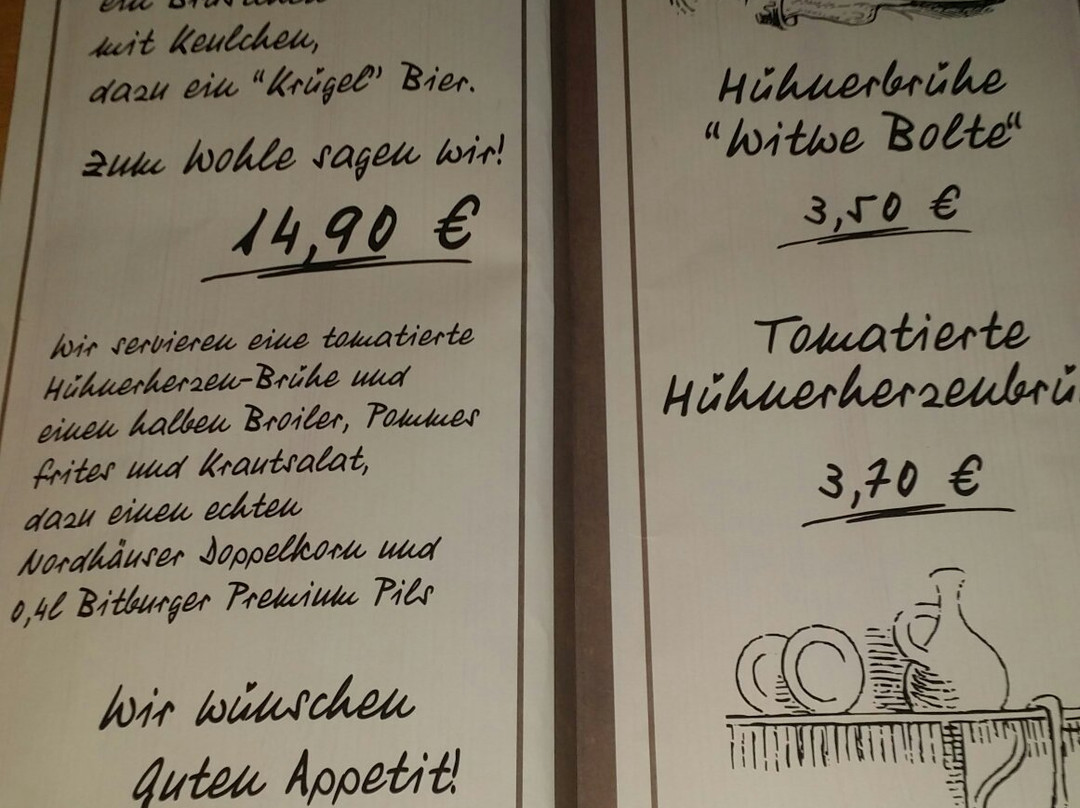 mit Keulchen,
dazu ein "Krügel" Bier.
Zum Wohle sagen wir!
14,90 €
Wir servieren eine tomatierte
Hühnerherzen-Brühe und
einen halben Broiler, Pommes
frites und Krautsalat,
dazu einen echten
Nordhäuser Doppelkorn und
0,4l Bitburger Premium Pils
Wir wünschen
guten Appetit!
Hühnerbrühe
"Witwe Bolte"
3,50 €
Tomatierte
Hühnerherzenbrü
3,70 €